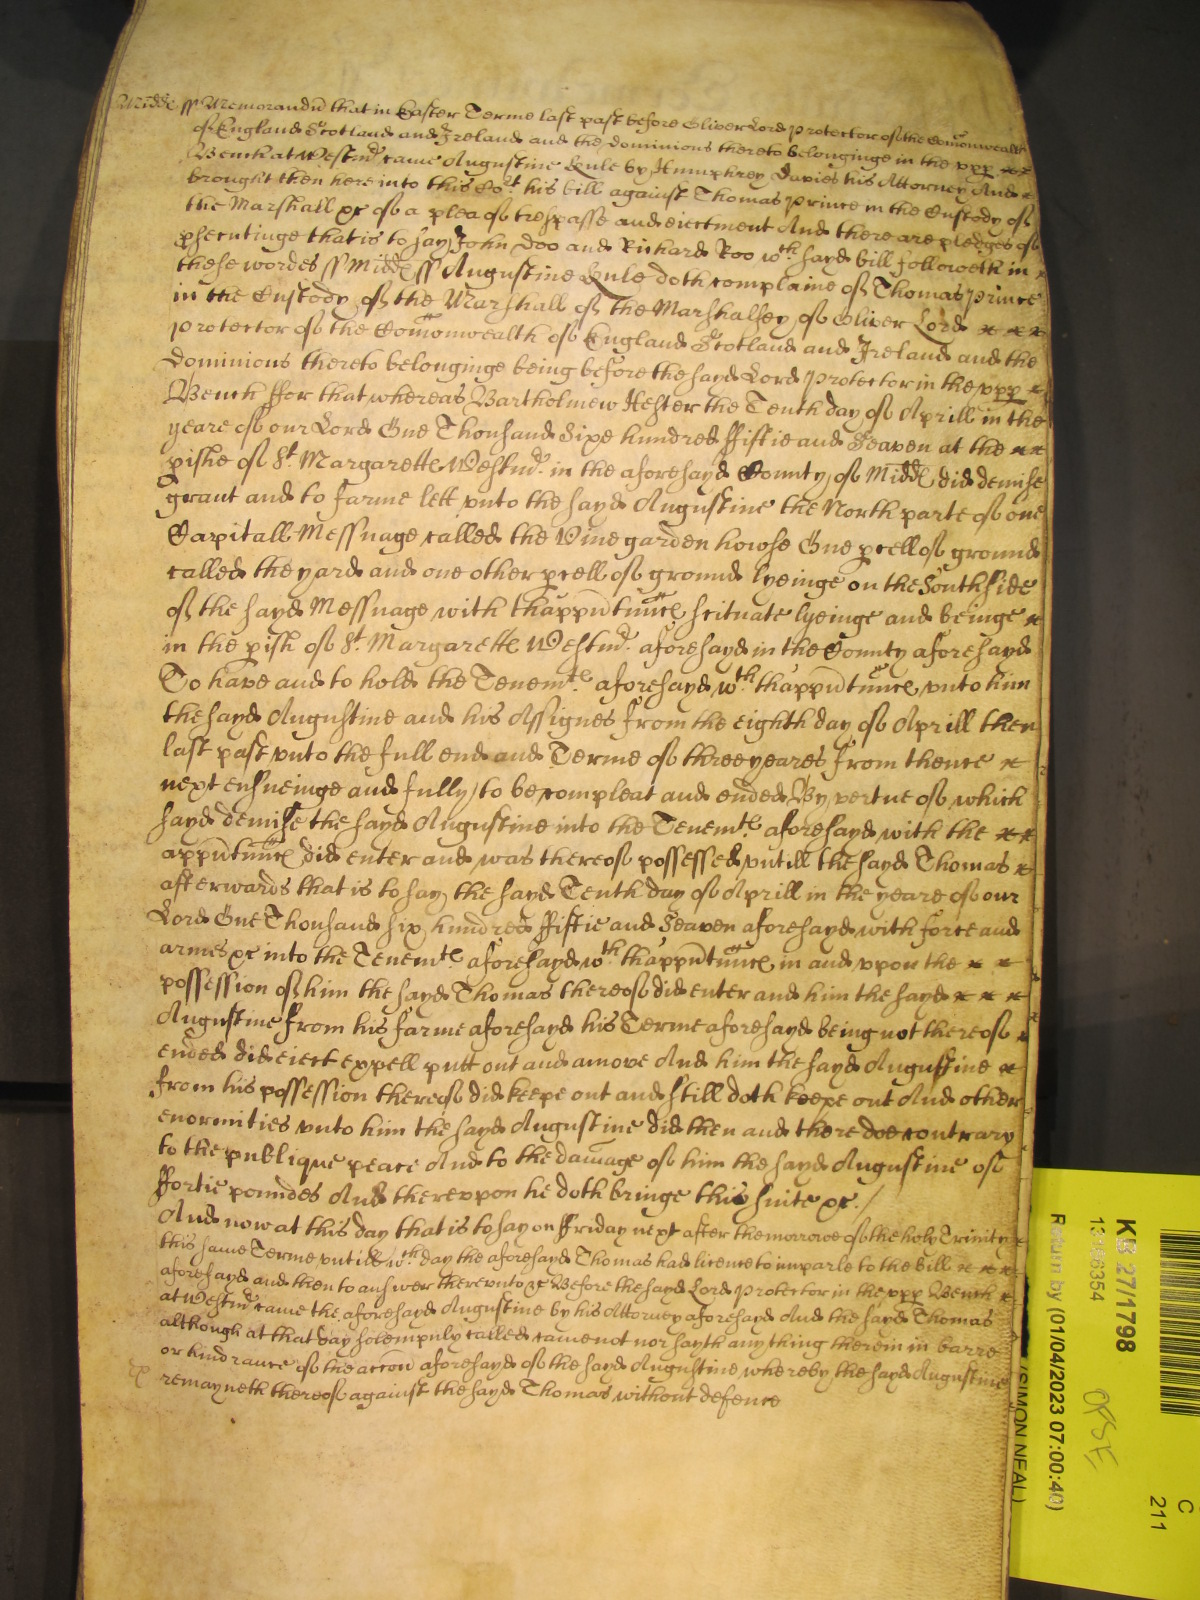 Midds ss Memorandũ that in Easter Terme last past before Oliver Lord Protector of the Com̃onwealth
of England Scotland and Ireland and the dominions thereto belonginge in the vpp
Bench at Westm̃d came Augustine Rule by Humphrey Davies his Attorney And
brought then here into this Cort his bill against Thomas Prince in the Custody of
the Marshall &c of a plea of trespasse and eiectment And there are pledges of
psecutinge that is to say John Doo and Richard Roo wth sayd bill followeth in
these wordes ss Midd ss Augustine Rule doth complaine of Thomas Prince
in the Custody of the Marshall of the Marshalsey of Oliver Lord
Protector of the Com̃onwealth of England Scotland and Ireland and the
dominions thereto belonginge being before the sayd Lord Protector in the vpp
Bench ffor that whereas Bartholmew Hester the Tenth day of Aprill in the
yeare of our Lord One Thousand Sixe hundred ffiftie and Seaven at the
pishe of St Margarette Westmd in the aforesayd County of Midd did demise
grant and to farme lett vnto the sayd Augustine the North parte of one
Capitall Messuage called the Vine garden howse One pcell of ground
called the yard and one other pcell of ground lyeinge on the South side
of the sayd Messuage with thapp̃utñnce scituate lyeinge and beinge
in the pish of St Margarette Westmd aforesayd in the County aforesayd
To have and to hold the Tenemte aforesayd wth thapp̃utñnce vnto him
the sayd Augustine and his Assignes from the eighth day of Aprill then
last past vnto the full end and Terme of three yeares from thence
next ensueinge and fully to be compleat and ended By vertue of which
sayd demise the sayd Augustine into the Tenemte aforesayd with the
app̃utñnce did enter and was thereof possessed vntill the sayd Thomas
afterwards that is to say the sayd Tenth day of Aprill in the yeare of our
Lord One Thousand six hundred ffiftie and Seaven aforesayd with force and
armes &c into the Tenemte aforesayd wth thapp̃utñnce in and vpon the
possession of him the sayd Thomas thereof did enter and him the sayd
Augustine from his farme aforesayd his Terme aforesayd being not thereof
ended did eiect expell putt out and amove And him the sayd Augustine
from his possession thereof did keepe out and still doth keepe out And other
enormities vnto him the sayd Augustine did then and there doe contrary
to the publique peace And to the dam̃age of him the sayd Augustine of
ffortie poundes And therevpon he doth bringe this suite &c./
And now at this day that is to say on ffriday next after the morrowe of the holy Trinity
this same Terme vntill wth day the aforesayd Thomas had licence to imparle to the bill
aforesayd and then to answer therevnto &c Before the sayd Lord Protector in the vpp Bench
at Westmd came the aforesayd Augustine by his Attorney aforesayd And the sayd Thomas
although at that day solempnly called came not nor sayth any thing therein in barre
or hindrance of the acc̃on aforesayd of the sayd Augustine whereby the sayd Augustine
remayneth thereof against the sayd Thomas without defence
KB 27/1798
13196354
Return by (01/04/2023 07:00:40)
(SIMON NEAL)
OPSE
C
211